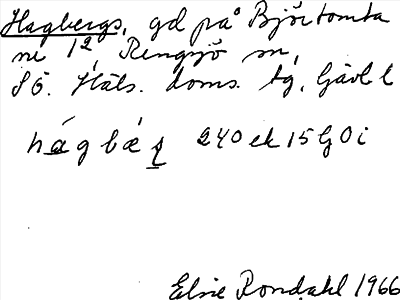 Hagbergs, gd på Björtomta
nr 1², Rengsjö sn,
SÖ. Häls. doms. tg, Gävl l
hágbæ̀ʂ 240 ek 15 G0i
Elsie Rondahl 1966